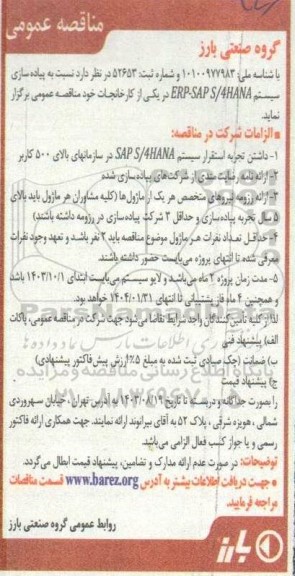 مناقصه عمومی
گروه صنعتی بارز
با شناسه ملی: ۱۰۱۰۰۹۷۷۹۸۳ و شماره ثبت: ۵۲۶۵۳ در نظر دارد نسبت به پیاده سازی
سیستم ERP-SAP S/4HANA در یکی از کارخانجات خود مناقصه عمومی برگزار
نماید.
الزامات شرکت در مناقصه:
۱- داشتن تجربه استقرار سیستم SAP S/4HANA در سازمانهای بالای ۵۰۰ کاربر
۲- ارائه نامه رضایت مندی از شرکت های پیاده سازی شده
۳- ارائه رزومه نیروهای متخصص هر یک از ماژول ها (کلیه مشاوران هر ماژول باید بالای
۵ سال تجربه پیاده سازی و حداقل ۳ شرکت پیاده سازی در رزومه داشته باشند)
۴- حداقل تعداد نفرات هر ماژول موضوع مناقصه باید ۲ نفر باشد و تعهد وجود نفرات
معرفی شده تا انتهای پروژه می بایست حضور داشته باشند.
۵- مدت زمان پروژه ۲ ماه می باشد و لایو سیستم می بایست ابتدای ۱۴۰۳/۱۰/۱ باشد
و همچنین ۴ ماه فاز پشتیبانی تا انتهای ۱۴۰۴/۰۱/۳۱ خواهد بود.
لذا از کلیه تأمین کنندگان واجد شرایط تقاضا می شود جهت شرکت در مناقصه عمومی، پاکات
الف) پیشنهاد فنی
ب) ضمانت (چک صیادی ثبت شده به مبلغ ۵٪ ارزش پیش فاکتور پیشنهادی)
ج) پیشنهاد قیمت
را بصورت جداگانه و دربسته تا تاریخ ۱۴۰۳/۰۸/۱۹ به آدرس تهران، خیابان سهروردی
شمالی، هویزه شرقی، پلاک ۵۲ به آقای بیرانوند ارائه نمایند. جهت همکاری ارائه فاکتور
رسمی و یا جواز کسب فعال الزامی می باشد.
توضیحات: در صورت عدم ارائه مدارک و تضامین، پیشنهاد قیمت ابطال می گردد.
جهت دریافت اطلاعات بیشتر به آدرس www.barez.org قسمت مناقصات
مراجعه فرمایید.
روابط عمومی گروه صنعتی بارز
بارز